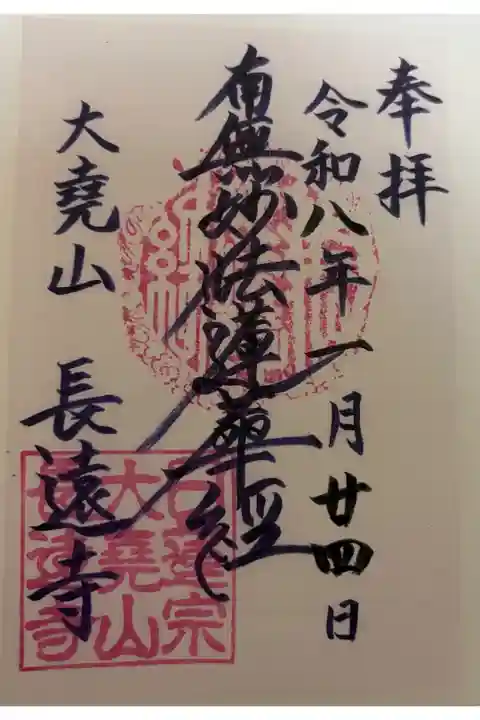 奉拝
令和八年一月廿四日
南無妙法蓮華経
大堯山 長遠寺
日蓮宗
大堯山
長遠寺